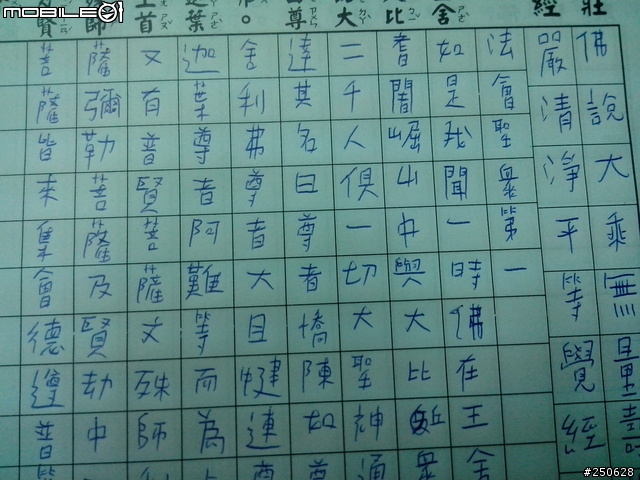 MOBILE01
莊
經
舍
比
大
尊
葉
首
師
賢
佛說大乘無量壽
嚴清淨平等覺經
法會聖眾第一
如是我聞一時佛在王舍
耆闍崛山中與大比丘眾
二千人俱一切大聖神通
達其名曰尊者憍陳如尊
舍利弗尊者大目犍連尊
迦葉尊者阿難等而為
又有普賢菩薩文殊師利
薩彌勒菩薩及賢劫中
菩薩皆來集會德遵普
#250628